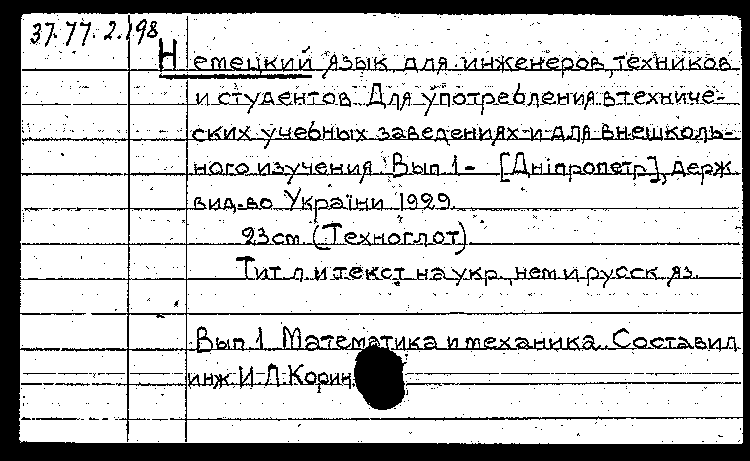 37.77.2.198
Немецкий язык для инженеров, техников
и студентов. Для употребления в техниче-
ских учебных заведениях и для внешколь-
ного изучения. Вып. 1 - [Дніпропетр], держ.
вид-во України 1929.
23 cm. (Техноглот).
Тит. л. и текст на укр., нем и русск яз.
Вып. 1. Математика и механика. Составил
инж. И. Л. Корин